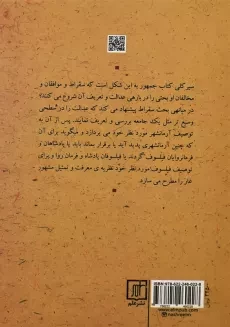 سیر کلی کتاب جمهور به این شکل است که سقراط و موافقان و
مخالفان او بحثی را در باره‌ی عدالت و تعریف آن شروع می کنند؛
در میانه‌ی بحث سقراط پیشنهاد می کند که عدالت را در سطحی
وسیع تر مثل یک جامعه بررسی و تعریف نمایند. پس از آن به
توصیف آرمانشهر مورد نظر خود می پردازد و میگوید برای آن
که چنین آرمانشهری پدید آید یا برقرار بماند باید یا پادشاهان و
فرمانروایان فیلسوف گردند، یا فیلسوفان پادشاه و فرمان روا و برای
توصیف فیلسوف مورد نظر خود نظریه ی معرفت و تمثیل مشهور
غار را مطرح می سازد.
نشر علم